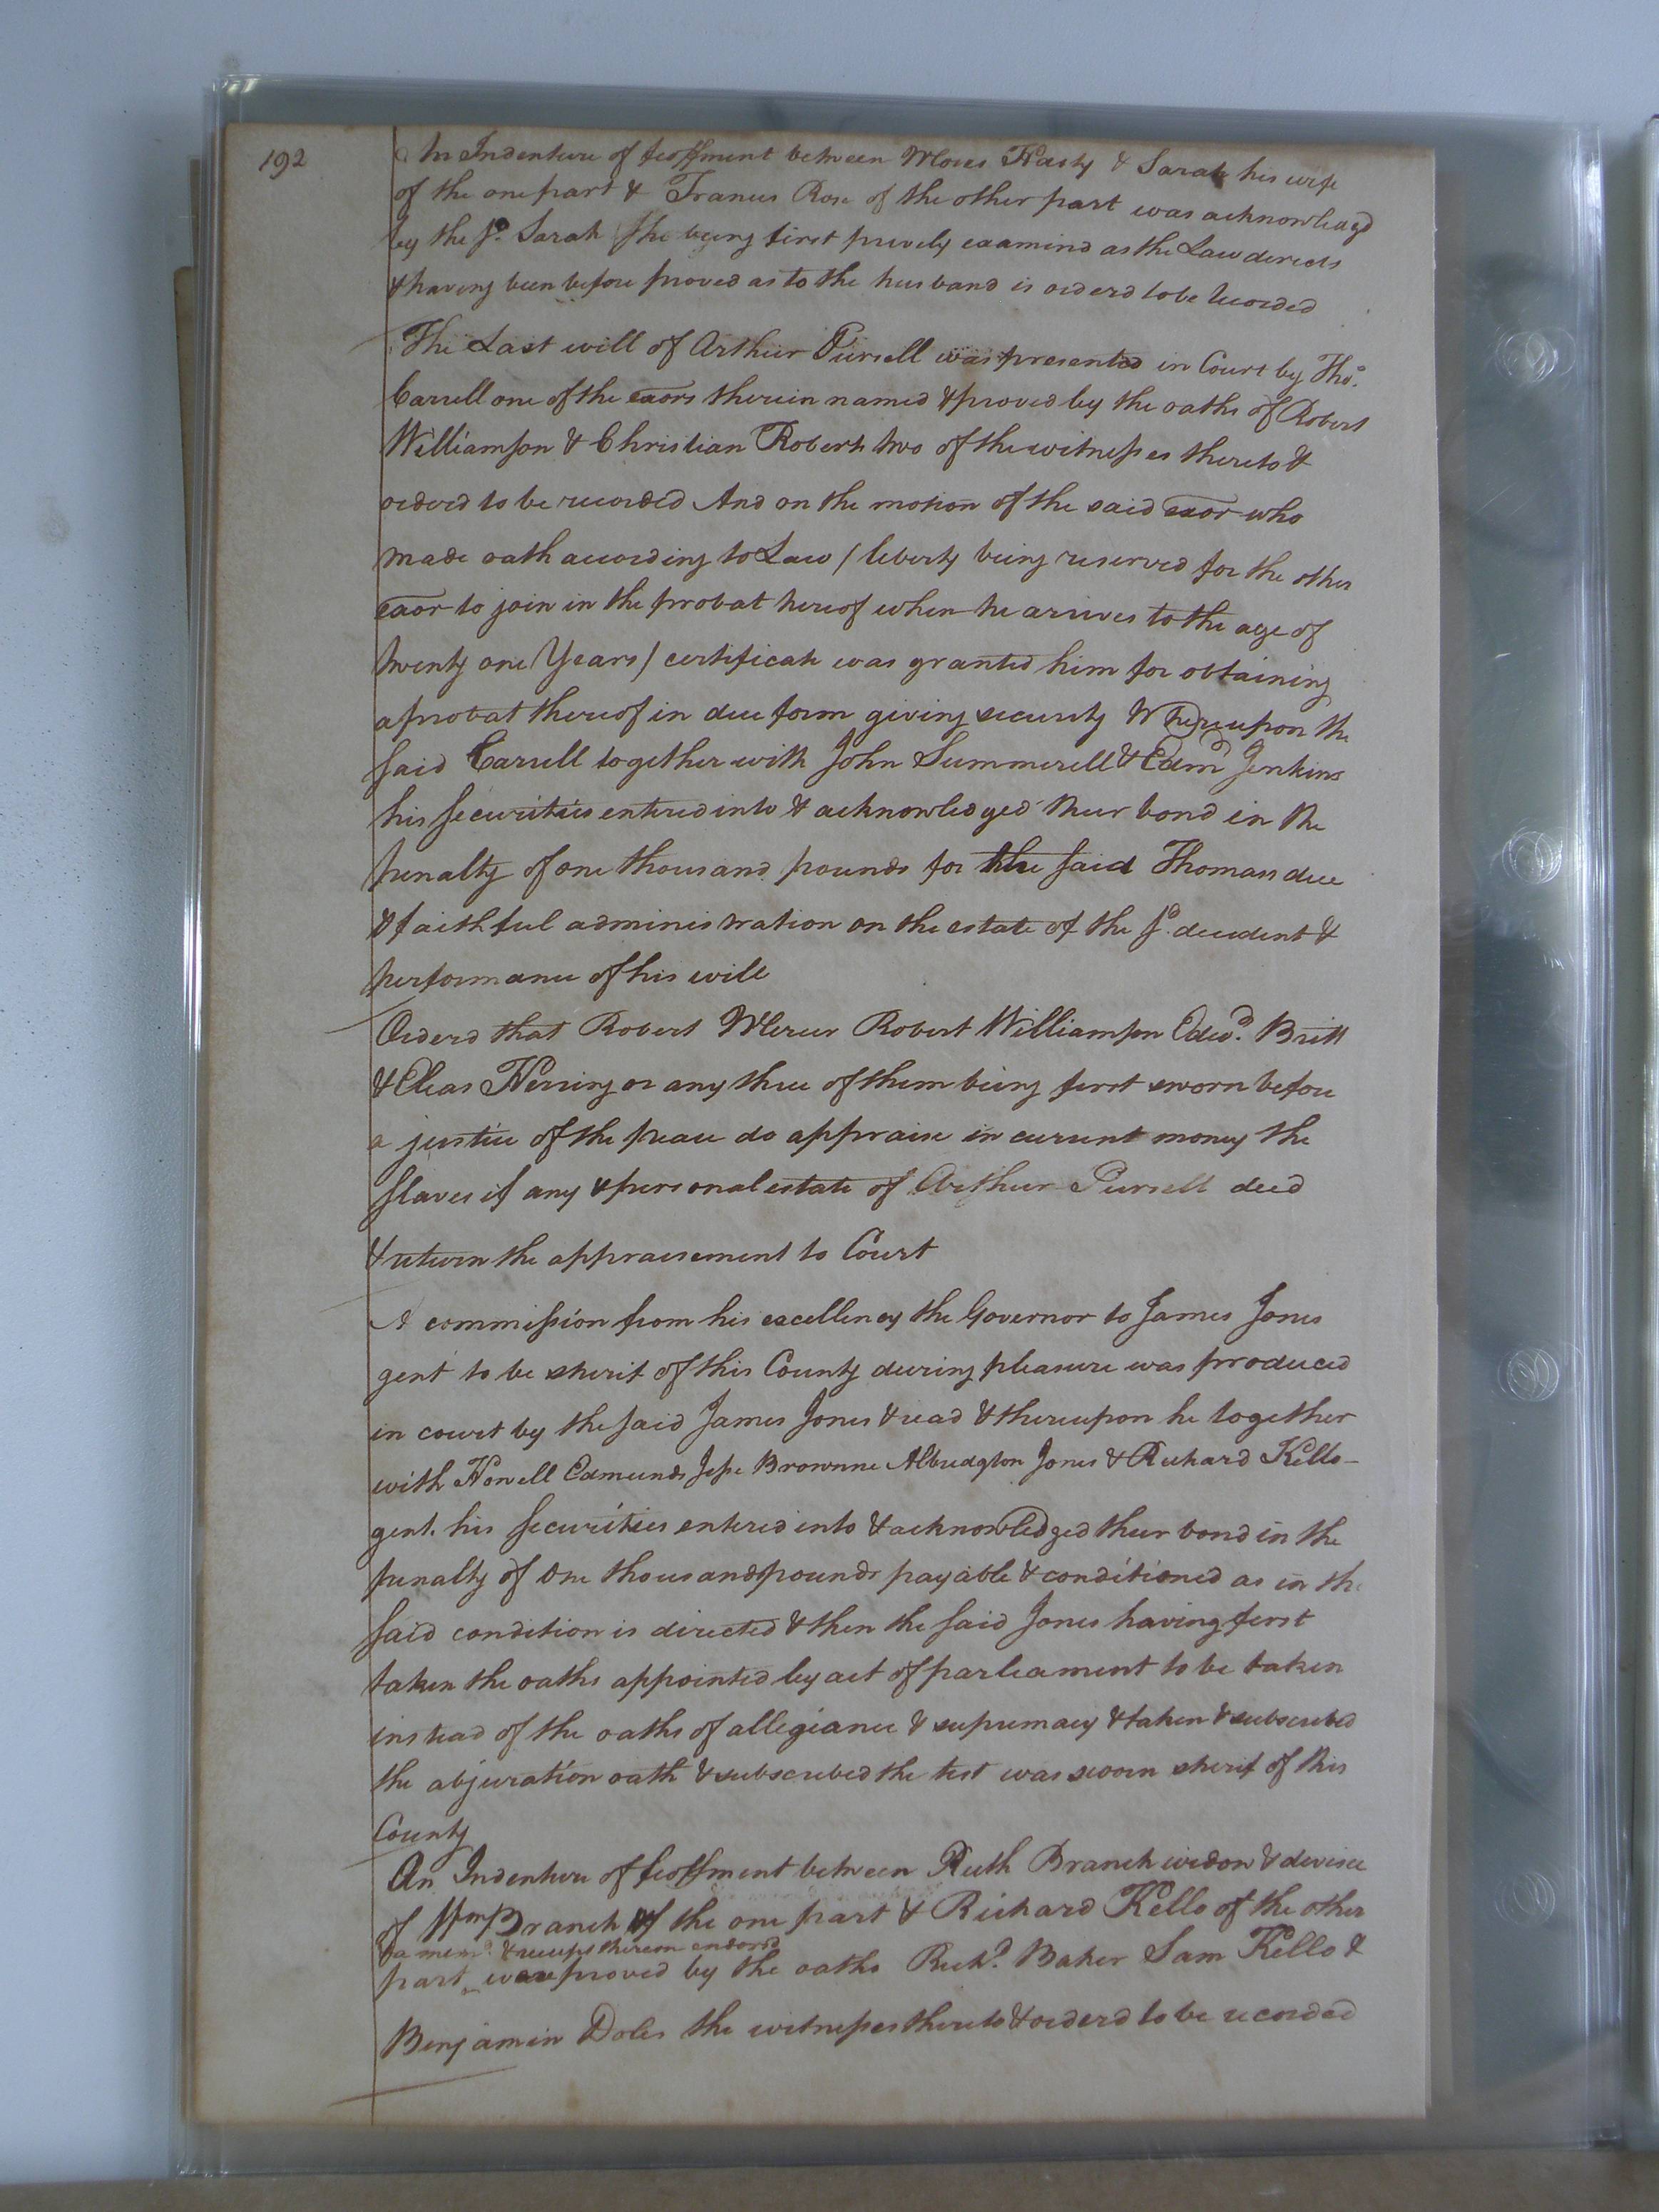 192
An Indenture of feoffment between Moses Hasty & Sarah his wife
of the one part & Francis Rose of the other part was acknowledgd
by the sd. Sarah she being first privily examind as the Law directs
& having been before proved as to the husband is orderd to be recorded
The Last will of Arthur Pursell was presented in Court by Thos.
Carrell one of the exors therein named & proved by the oaths of Robert
Williamson & Christian Roberts two of the witnesses thereto &
orderd to be recorded And on the motion of the said exor who
made oath according to Law / liberty being reserved for the other
exor to join in the probat hereof when he arives to the age of
twenty one Years / certificate was granted him for obtaining
a probat thereof in due form giving security Whereupon the
said Carrell together with John Summerell & Edmd. Jenkins
his securities entered into & acknowledged their bond in the
penalty of one thousand pounds for the said Thomass due
& faithful administration on the estate of the sd. decedent &
performance of his will
Orderd that Robert Mercer Robert Williamson Edwd. Britt
& Elias Herring or any three of them being first sworn before
a justice of the peace do appraise in current money the
slaves if any & personal estate of Arthur Pursell decd
& return the appraisement to Court
A commission from his excellency the Governor to James Jones
gent to be sherif of this County during pleasure was produced
in court by the said James Jones & read & thereupon he together
with Howell Edmunds Jesse Brownne Albridgton Jones & Richard Kello
gent. his securities entered into & acknowledged their bond in the
penalty of One thousand pounds payable & conditioned as in the
said condition is directed & then the said Jones having first
taken the oaths appointed by act of parleament to be taken
instead of the oaths of allegiance & supremacy & taken & subscribed
the abjuration oath & subscribed the test was sworn sherif of this
County
An Indenture of feoffment between Ruth Branch widow & devisee
of Wm Branch of the one part & Richard Kello of the other
& a memd. & receipt thereon endorsd
part were proved by the oaths Richd. Baker Sam Kello &
Benjamin Doles the witnesses thereto & orderd to be recorded